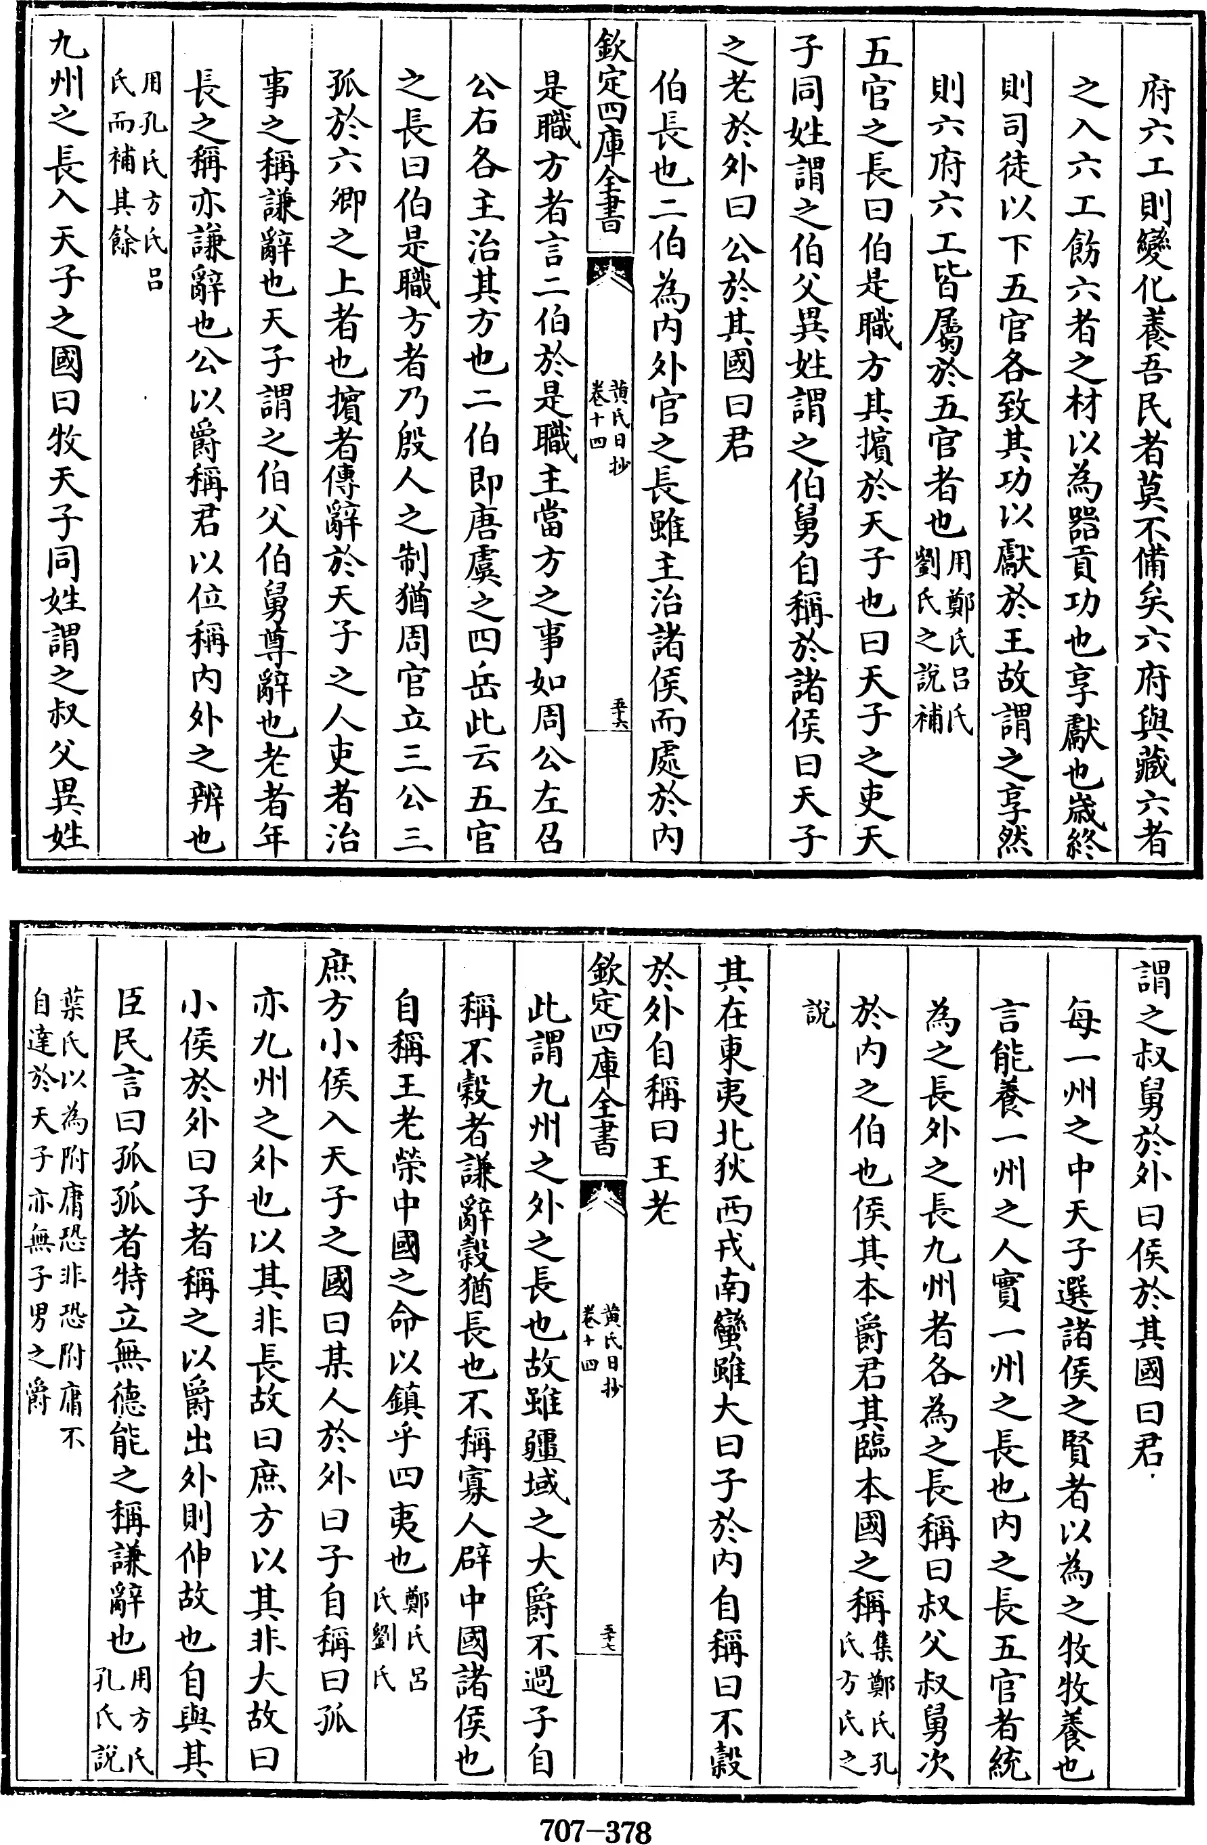 府六工則變化養吾民者莫不備矣六府與藏六者
之入六工飭六者之材以為器貢功也享獻也歲終
則司徒以下五官各致其功以獻於王故謂之享然
則六府六工皆屬於五官者也用鄭氏呂氏劉氏之說補
五官之長曰伯是職方其擯於天子也曰天子之吏天
子同姓謂之伯父異姓謂之伯舅自稱於諸侯曰天子
之老於外曰公於其國曰君
伯長也二伯為內外官之長雖主治諸侯而處於內
欽定四庫全書
黃氏日抄
卷十四
五十六
是職方者言二伯於是職主當方之事如周公左召
公右各主治其方也二伯即唐虞之四岳此云五官
之長曰伯是職方者乃殷人之制猶周官立三公三
孤於六卿之上者也擯者傳辭於天子之人吏者治
事之稱謙辭也天子謂之伯父伯舅尊辭也老者年
長之稱亦謙辭也公以爵稱君以位稱內外之辨也
用孔氏方氏呂
氏而補其餘
九州之長入天子之國曰牧天子同姓謂之叔父異姓
謂之叔舅於外曰侯於其國曰君
每一州之中天子選諸侯之賢者以為之牧牧養也
言能養一州之人實一州之長也內之長五官者統
為之長外之長九州者各為之長稱曰叔父叔舅次
於內之伯也侯其本爵君其臨本國之稱集鄭氏孔氏方氏之
說
其在東夷北狄西戎南蠻雖大曰子於內自稱曰不穀
於外自稱曰王老
欽定四庫全書
黃氏日抄
卷十四
五十七
此謂九州之外之長也故雖疆域之大爵不過子自
稱不穀者謙辭穀猶長也不稱寡人辟中國諸侯也
自稱王老榮中國之命以鎮乎四夷也鄭氏呂氏劉氏
庶方小侯入天子之國曰某人於外曰子自稱曰孤
亦九州之外也以其非長故曰庶方以其非大故曰
小侯於外曰子者稱之以爵出外則伸故也自與其
臣民言曰孤孤者特立無德能之稱謙辭也用方氏孔氏說
葉氏以為附庸恐非恐附庸不
自達於天子亦無子男之爵
707-378